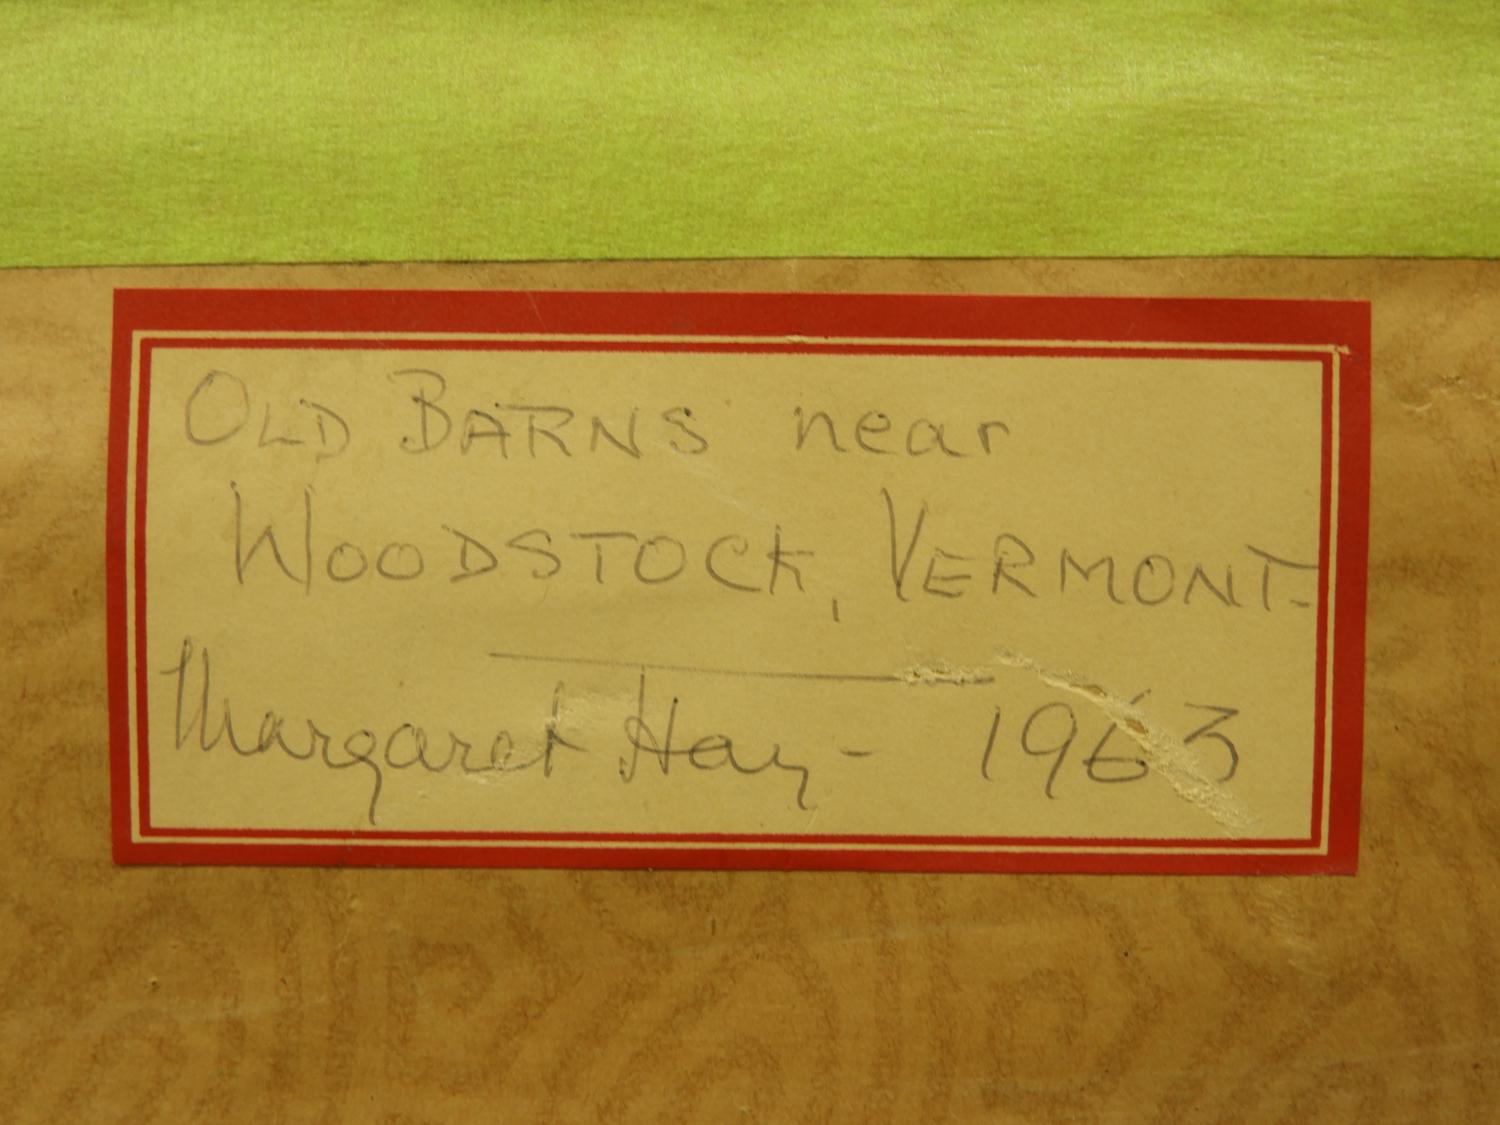 OLD BARNS near
WOODSTOCK, VERMONT.
Margaret Hay - 1963